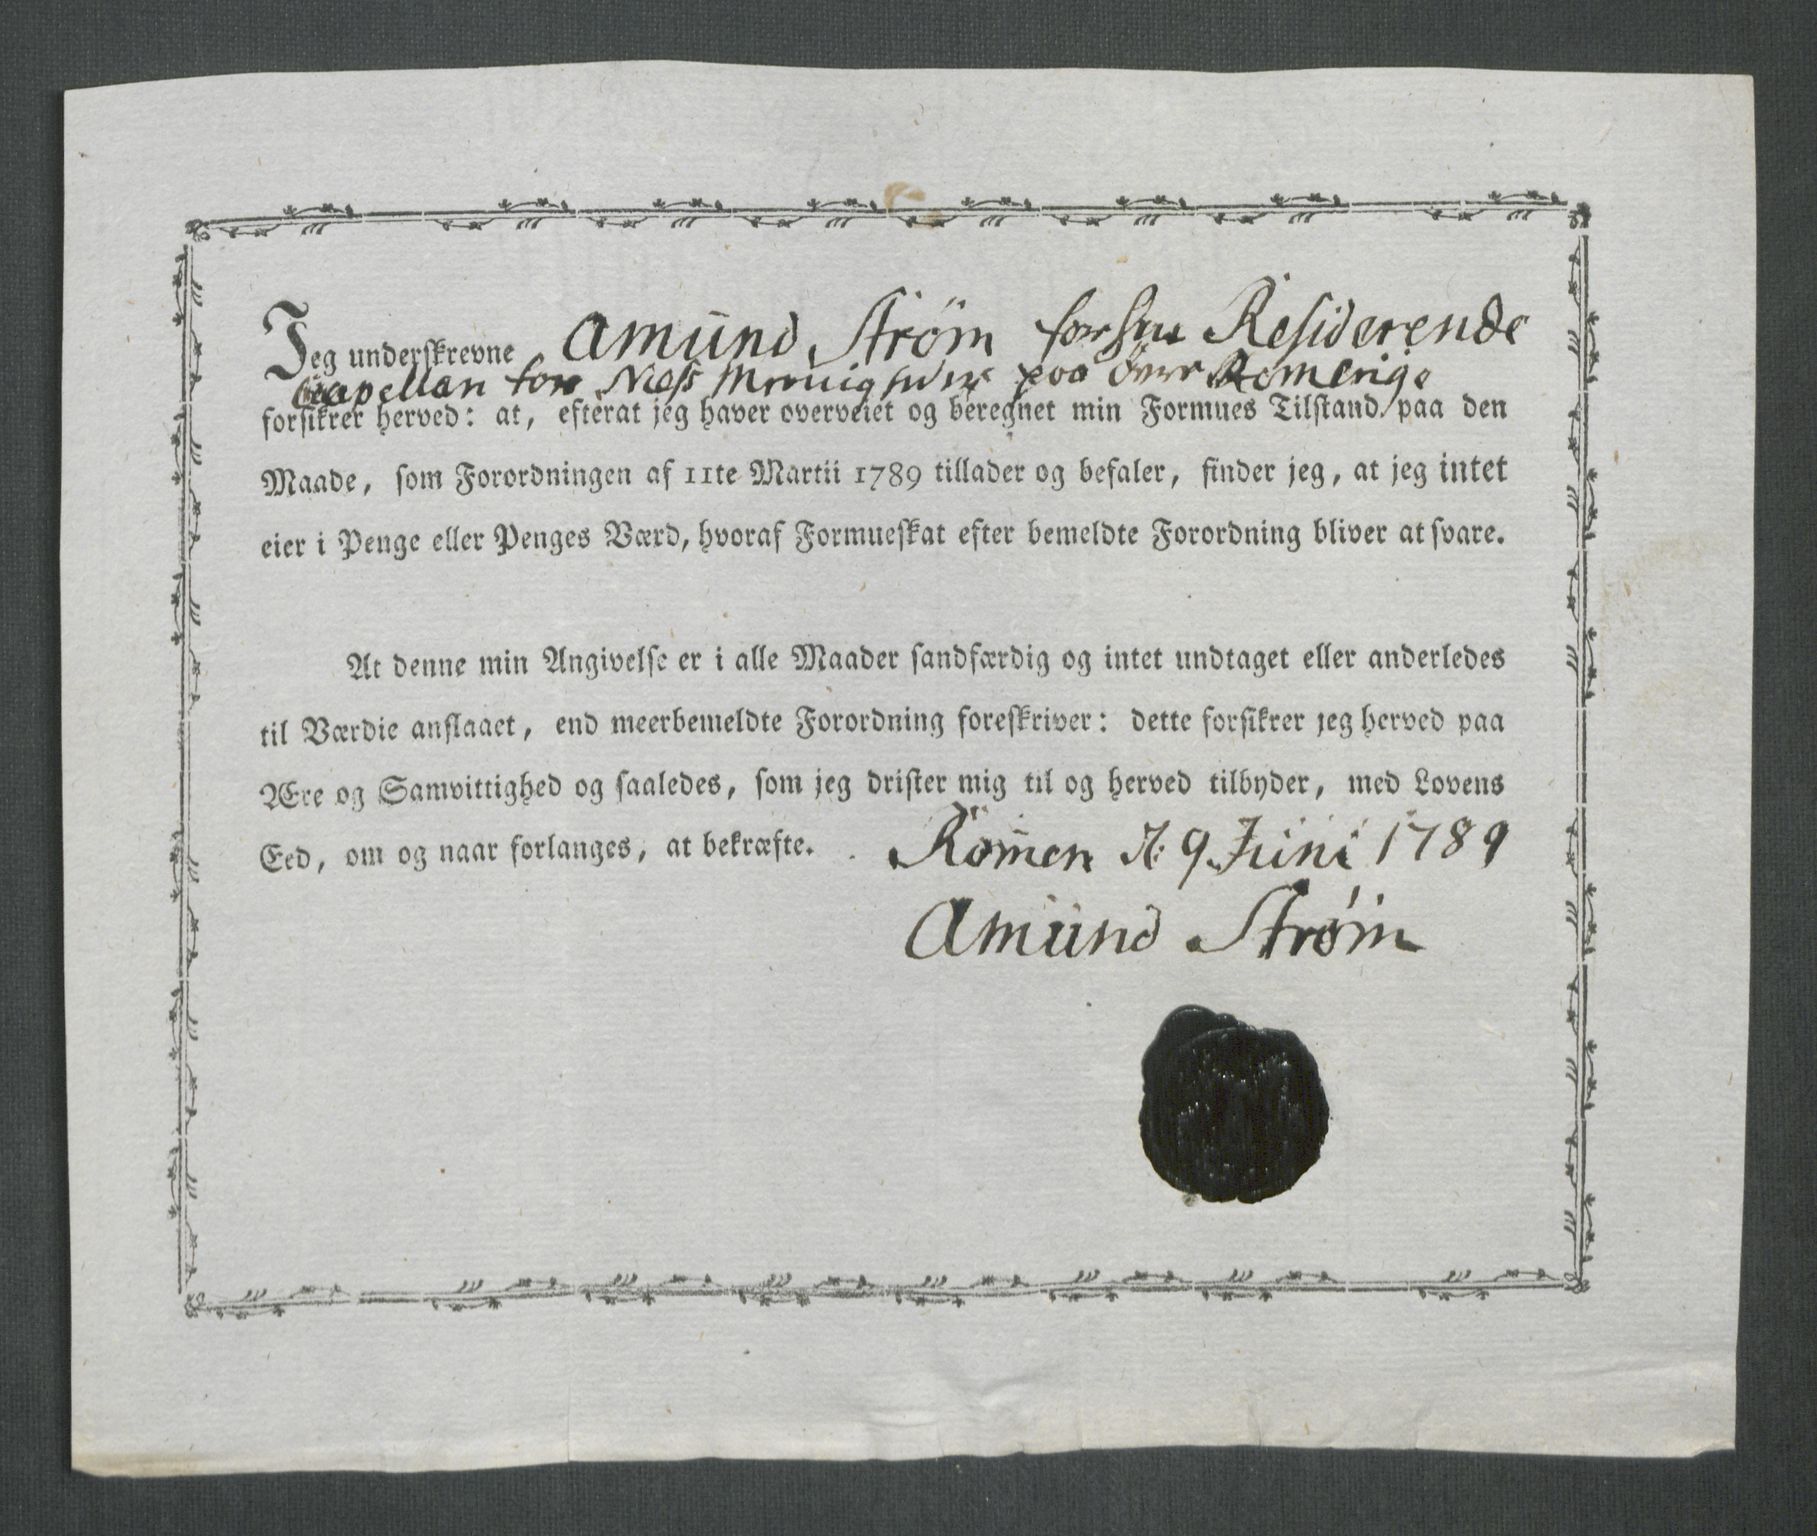 Jeg underskrevne Amund Strøm Residerende
Capellan for Næss Menigheder paa Øvre Romerige
forsikrer herved: at, efterat jeg haver overveiet og beregnet min Formues Tilstand paa den
Maade, som Forordningen af 11te Martii 1789 tillader og befaler, finder jeg, at jeg intet
eier i Penge eller Penges Værd, hvoraf Formueskat efter bemeldte Forordning bliver at svare.
At denne min Angivelse er i alle Maader sandfærdig og intet undtaget eller anderledes
til Værdie anslaaet, end meerbemeldte Forordning foreskriver: dette forsikrer jeg herved paa
Ære og Samvittighed og saaledes, som jeg drister mig til og herved tilbyder, med Lovens
Eed, om og naar forlanges, at bekræfte. Rømen d: 9 Juni 1789
Amund Strøm